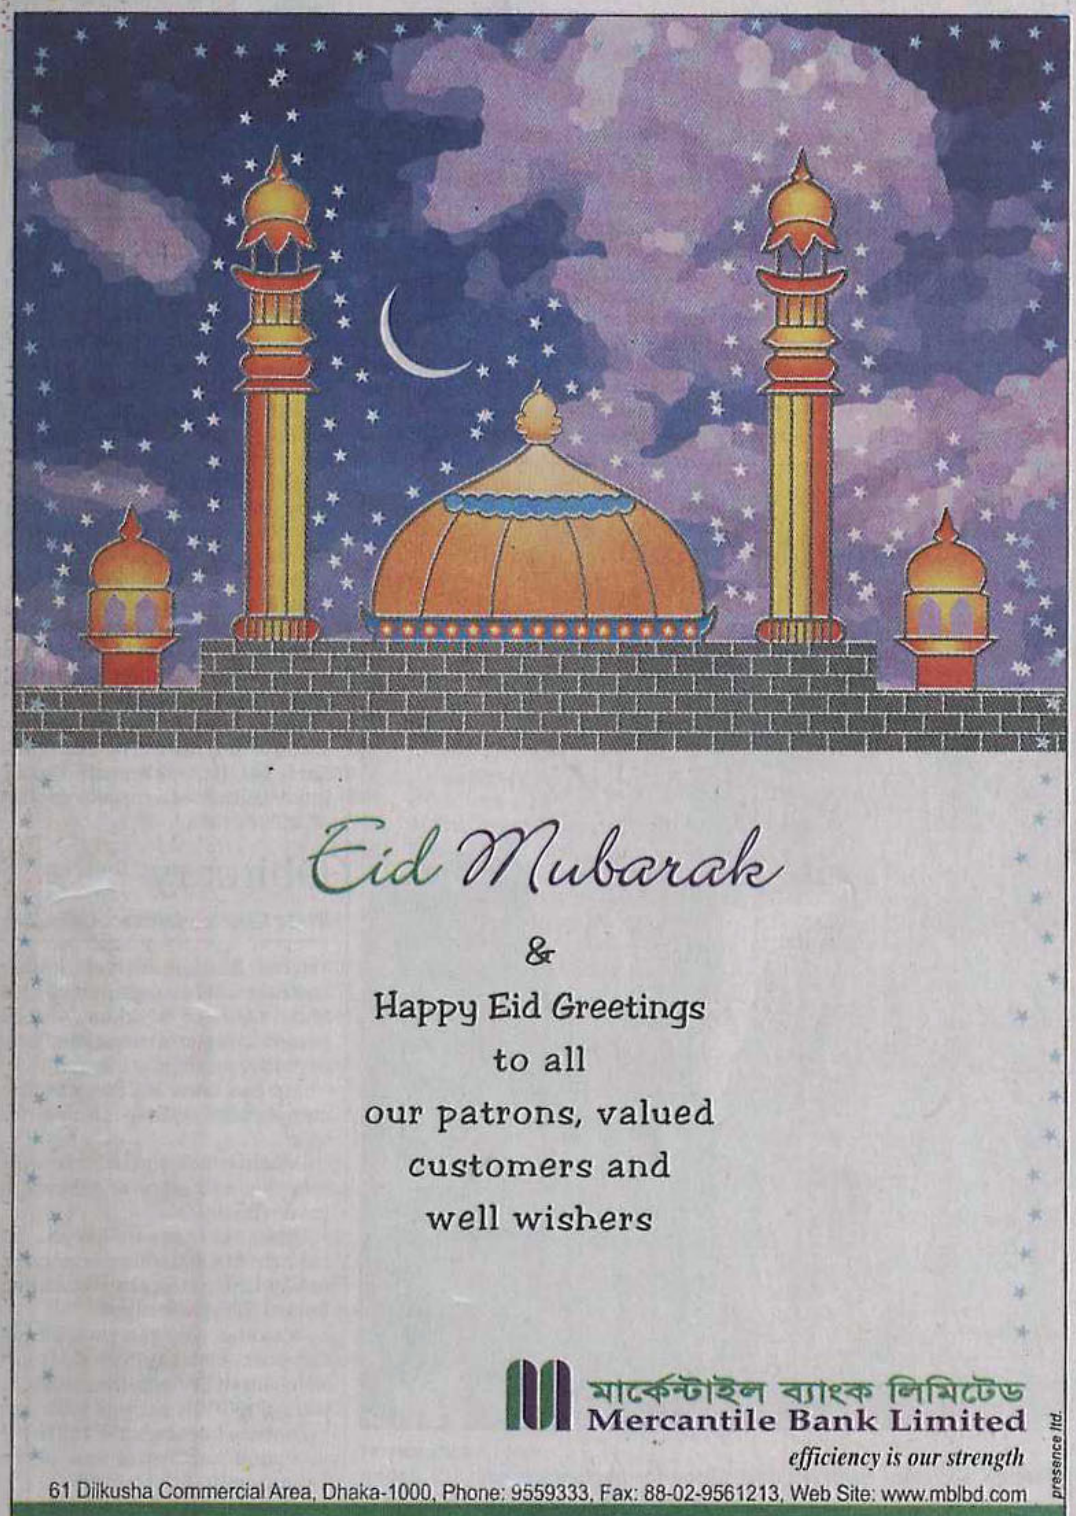 Eid Mubarak
&
Happy Eid Greetings
to all
our patrons, valued
customers and
well wishers
মার্কেন্টাইল ব্যাংক লিমিটেড
Mercantile Bank Limited
efficiency is our strength
presence ltd.
61 Dilkusha Commercial Area, Dhaka-1000, Phone: 9559333, Fax: 88-02-9561213, Web Site: www.mblbd.com